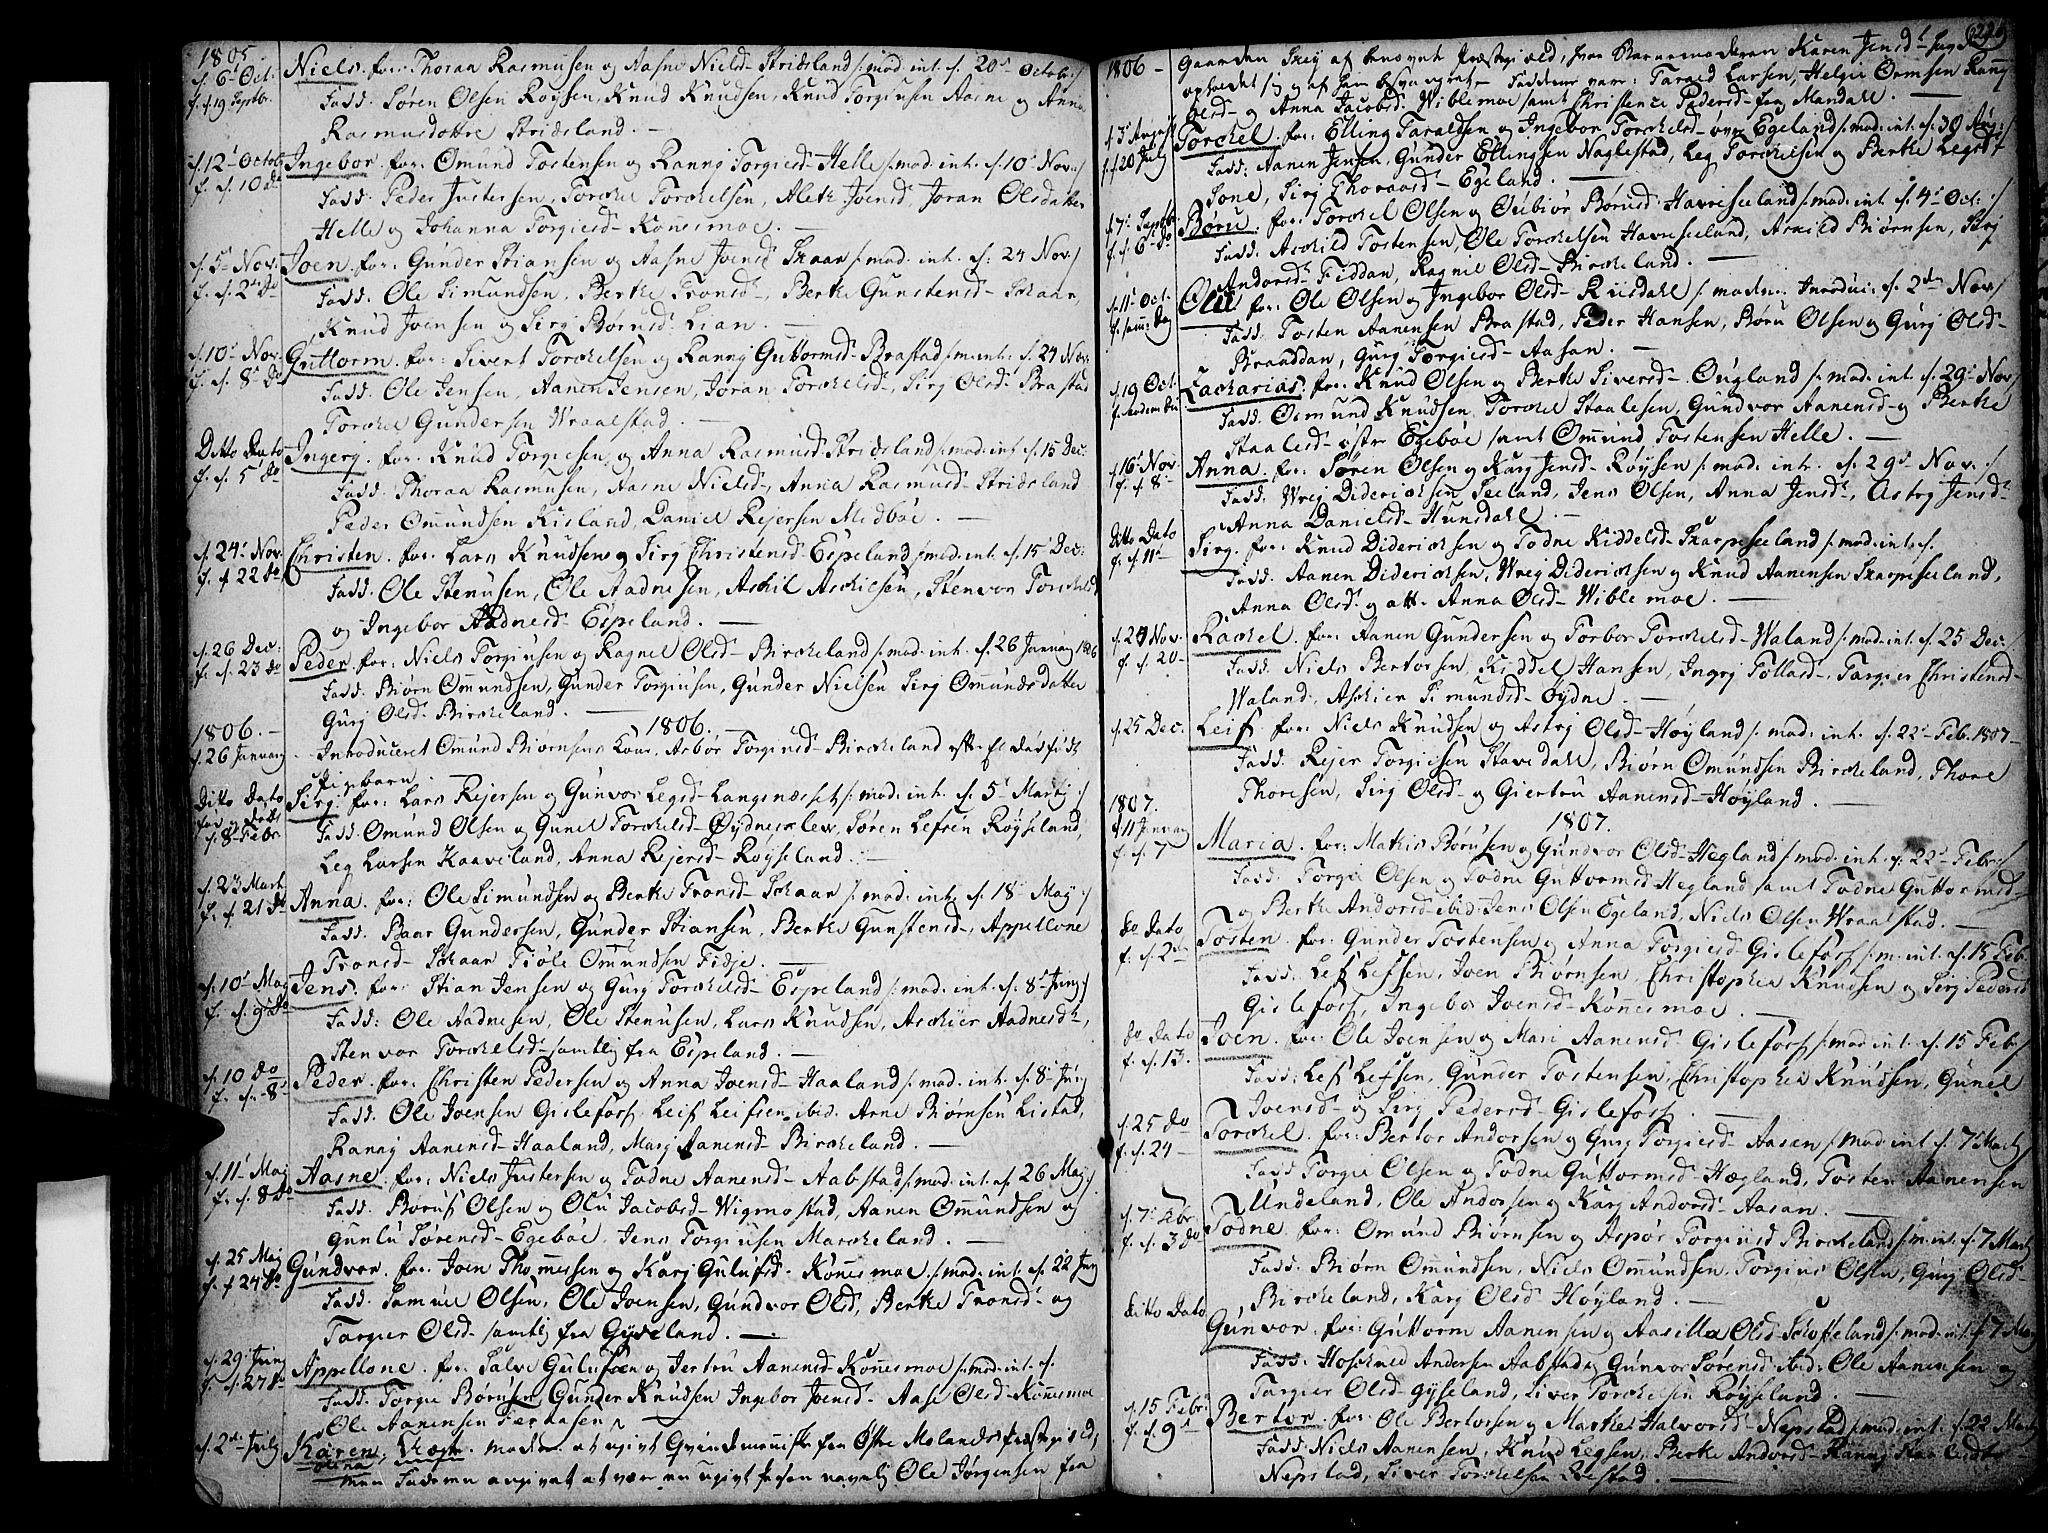 1805
d. 6t Oct: Niels. for: Thoraa Rasmusen og Aasne Nielsd- Stridsland /: mad. int. d. 20d Octobr:/
f. d 19 Septbr. Fadd. Søren Olsen Røysen, Knud Knudsen, Knud Torgiusen Aasne og Anna
Rasmusdottre Stridsland. -
d. 12t Octob Ingebor. for: Omund Tostensen og Ranng Torgiesd- Helle /: mad. int. d. 10d Nov:/
f. d. 10 do Fadd. Peder Justersen, Torkel Torkelsen, Alette Joensd, Joran Olsdatter
Helle og Johanna Torgiesd- Konesmoe. -
d. 5d Nov: Joen. for: Gunder Stiansen og Aasne Joensd Skaar /: mad. int. d: 24 Nov:/
f. d. 2d Do Fadd. Ole Simundsen, Berthe Tronsd-, Berthe Gunstensd- Skaar,
Knud Joensen og Sirj Børusd- Lian. -
d. 10d Nov. Guttorm. for: Sivert Torkelsen og Ranng Guttormsd- Brastad /: m. int: d. 24 Nov:
f. d. 8d Do Fadd. Ole Jensen, Aanen Jensen, Joran Torkelsd-, Sirj Olsd- Brastad
Torkel Gundersen Wraalstad. -
Ditto Dato Ingerg. for. Knud Torgiesen og Anna Rasmusd- Stridsland /: mad. int d. 15 Dec:
f. d. 5d do Fadd. Thoraa Rasmusen, Aasne Nielsd-, Anna Rasmusd- Stridsland
Peder Omundsen Risland, Daniel Rejersen Medbøe. -
d. 24d Nov. Christen. for. Lars Knudsen og Sirj Christensd- Espeland /: mad. int. d. 15 Dec:
f. d 22 do Fadd. Ole Stenusen, Ole Aadnesen, Askil Askilsen, Stenvor Torkelsd
og Ingebor Aadnesd- Espeland. -
d. 26 Dec: Peder. for: Niels Torgiusen og Ragnel Olsd- Birkeland /: mad. int. d. 26 Januarij 1806
f. d. 23 do Fadd. Biørn Omundsen, Gunder Torgiusen, Gunder Nielsen Sirj Omundsdatter
Gurj Olsd- Birkeland. -
1806. - 1806. -
d. 26 Januarij - Introduceret Omund Biørnsens Kone, Asbør Torgiusd- Birkeland efter et dødfødt
Pigebarn.
Ditto Dato Sirj. for: Lars Rejersen og Gunvor Legsd- Langenesset /: mad. int. d. 5d Martij:/
d. 8d Febr Fadd. Omund Olsen og Gunel Torkelsd- Øydneskleu, Søren Lefsen Røyseland,
Leg Larsen Kaaveland, Anna Rejersd- Røyseland. -
d. 23 Mart Anna. for: Ole Simundsen og Berthe Tronsd- Skaar /: mad. int. d. 18d Maij:/
f. d 21 do Fadd. Baar Gundersen, Gunder Stiansen, Berthe Gunstensd-, Appellone
Tronsd- Skaar Tiøle Omundsen Fidje. -
d. 10d Maj Jens. for: Stian Jensen og Gurj Torkelsd- Espeland /: mad. int. d. 8d Junij:/
f. d. 9d do Fadd: Ole Aadnesen, Ole Stenusen, Lars Knudsen, Askier Aadnesd-,
Stenvor Torkelsd- samtlig fra Espeland. -
d. 10 do Peder. for: Christen Pedersen og Anna Joensd- Haaland /: mad. int. d. 8d Junj
f. d. -8d Fadd. Ole Joensen Gislefoss, Leif Leifsen ibid. Arne Biørnsen Listad,
Ranng Aanensd- Haaland, Marj Aanensd- Birkeland. -
d. 11d Maj Aasne. for: Niels Justersen og Todne Aanensd- Aabstad /: mad. int. d. 26 Maij:/
f. d. 8d do Fadd. Børuf Olsen og Olu Jacobsd- Wigmostad, Aanen Omundsen og
Gunlu Sørensd- Egebøe. Jens Torgiusen Markeland. -
d. 25 Maj Gundvor. for: Joen Thommessen og Karj Gulufsd- Konesmoe /: mad. int. d. 22 Junj
f. d 24d do Fadd. Samuel Olsen, Ole Joensen, Gundvor Olsd, Berthe Tronsd- og
Targier Olsd- samtlig fra Gyseland. -
d. 29d Junj Appellone. for: Salve Gulufsen og Jertru Aanensd- Konesmoe /: mad. int. d.
d. 27d do Fadd. Torgie Børusen Gunder Knudsen Ingebor Joensd- Aase Olsd- Konesmoe
Ole Aanensen
d. 2d Julij Karen moderen et ugivt Qvindemenniske fra Østre Molands Præstegield,
men Faderen angivet at være en ugivt Person navnlig Ole Jørgensen fra
1806 - Gaarden af benævnt Præstegield, hvor Barnemoderen Karen Jensd-
opholdt sig og af ham besvangret - Fadderne vare: Tarald Larsen, Helgie Ormsen Ranng
Olsd- og Anna Jacobsd- Wiblemoe samt Christence Pedersd- fra Mandahl. -
d. 3d August Torkel. for: Elling Taraldsen og Ingebor Torkelsd- øvre Egeland /: mad: int. d. 30 Aug:/
f. d 20 Julj Fadd: Aanen Jensen, Gunder Ellingsen Naglestad, Leg Torkelsen og Berthe Legsd-
Sone, Sirj Thoraasd- Egeland. -
d. 7d Septbr Børu. for: Torkel Olsen og Oubiør Børusd- Havreseeland /: mad: int d. 4d Oct:/
f. d. 6d do Fadd. Askild Tostensen, Ole Torkelsen Havreseeland, Askild Biørnsen, Sirj
Andorsd- Fiddan, Ragnil Olsd- Birkeland. -
d. 11d Oct. Oluf for: Ole Olsen og Ingebor Olsd- Risdahl /: maden: Introdu: d. 2den Nov:/
f. samme Dag Fadd. Tosten Aanensen Brastad, Peder Hansen, Børu Olsen og Gurj Olsd-
Branddan, Gurj Torgiesd- Aasan. -
d. 19 Oct. Zacharias. for: Knud Olsen og Berthe Siversd- Ougland /: mad. int. d. 29d Nov:/
Fadd. Osmund Knudsen Torkel Staalesen, Gundvor Aanensd- og Berthe
Staalesd- østre Egebøe samt Omund Tostensen Helle. -
d. 16d Nov Anna. for: Søren Olsen og Karj Jensd- Røysen /: mad: int. d. 29d Nov:/
f. d 8d Fadd. Wrej Didericksen Seeland, Jens Olsen, Anna Jensd-, Astrj Jensd-
Anna Danielsd- Hunsdahl. -
Ditto Dato Sirj. for: Knud Didericksen og Todne Kiddelsd- Skarpeseeland /: mad. int. d.
f. d. 11d Fadd. Aanen Didericksen, Wrej Didericksen og Knud Aanensen Skarpeseeland,
Anna Olsd- og att. Anna Olsd- Wiblemoe. -
d. 24 Nov. Rachel. for: Aanen Gundersen og Torbor Torkelsd- Waland /: mad. int. d. 25 Dec:/
f. d. 20- Fadd. Niels Bertorsen, Kiddel Hansen, Ingrj Tollasd-, Targier Christensd-
Waland, Askier Simundsd- Øydne. -
d. 25 Dec. Leif. for: Niels Knudsen og Astrj Olsd- Høyland /: mad. int. d. 22d Feb. 1807-
Fadd. Rejer Torgiesen Stavedahl, Biørn Omundsen Birkeland, Thore
Thoresen, Sirj Olsd- og Giertru Aanensd- Høyland. -
1807. 1807.
d 11 Januarij Maria. for: Mathis Børusen og Gundvor Olsd- Hegland /: mad. int. d. 22d Febr:/
f. d. 7 Fadd. Torgie Olsen og Todne Guttormsd- Hegland samt Todne Guttormsd-
og Berthe Andorsd- ibid. Jens Olsen Egeland, Niels Olsen Wraalstad. -
do Dato Tosten. for: Gunder Tostensen og Anna Torgiesd- Gislefoss /: m. int. d. 15 Feb.
f. d. 2d Fadd. Leif Leifsen, Joen Biørnsen, Christopher Knudsen og Sirj Pedersd
Gislefoss, Ingebor Joensd- Konesmoe. -
do Dato Joen. for: Ole Joensen og Mari Aanensd- Gislefoss /: mad int. d. 15 Feb:/
f. d. 13. Fadd: Leif Leifsen, Gunder Tostensen, Christopher Knudsen, Gunel
Joensd- og Sirj Pedersd- Gislefoss. -
d. 25 do Torkel. for: Bertor Andorsen og Gurj Torgiesd- Aasan /: mad. int d. 7d Martj
f. d. 24 - Fadd Torgie Olsen og Todne Guttormsd- Hægland, Tosten Aanensen
Undeland, Ole Andorsen og Karj Andorsd- Aasan. -
d. 7d Febr Todne. for: Omund Biørnsen og Aspør Torgiusd Birkeland /: m. int. d. 7 Martj
f. d. 3 do Fadd: Biørn Omundsen, Niels Omundsen, Torgius Olsen, Gurj Olsd-
Birkeland, Karj Olsd- Høyland. -
Ditto Dato Gunvor. for: Guttorm Aanensen og Aasille Olsd- /: mad. int. d 7 Martj
Fadd: Andersen Aabstad, Gunvor Sørensd- ibid: Ole Aanensen og
Targier Olsd- Gyseland, Siver Torkelsen Røyseland. -
d. 15 Febr Bertor. for: Ole Bertorsen og Marthe Halvorsd- Nepstad /: mad. int. d. 22 Martj
f. d. 9d Fadd: Niels Aanensen, Knud Legsen, Berthe Andorsd- Ranng
Nepstad, Siver Torkelsen -